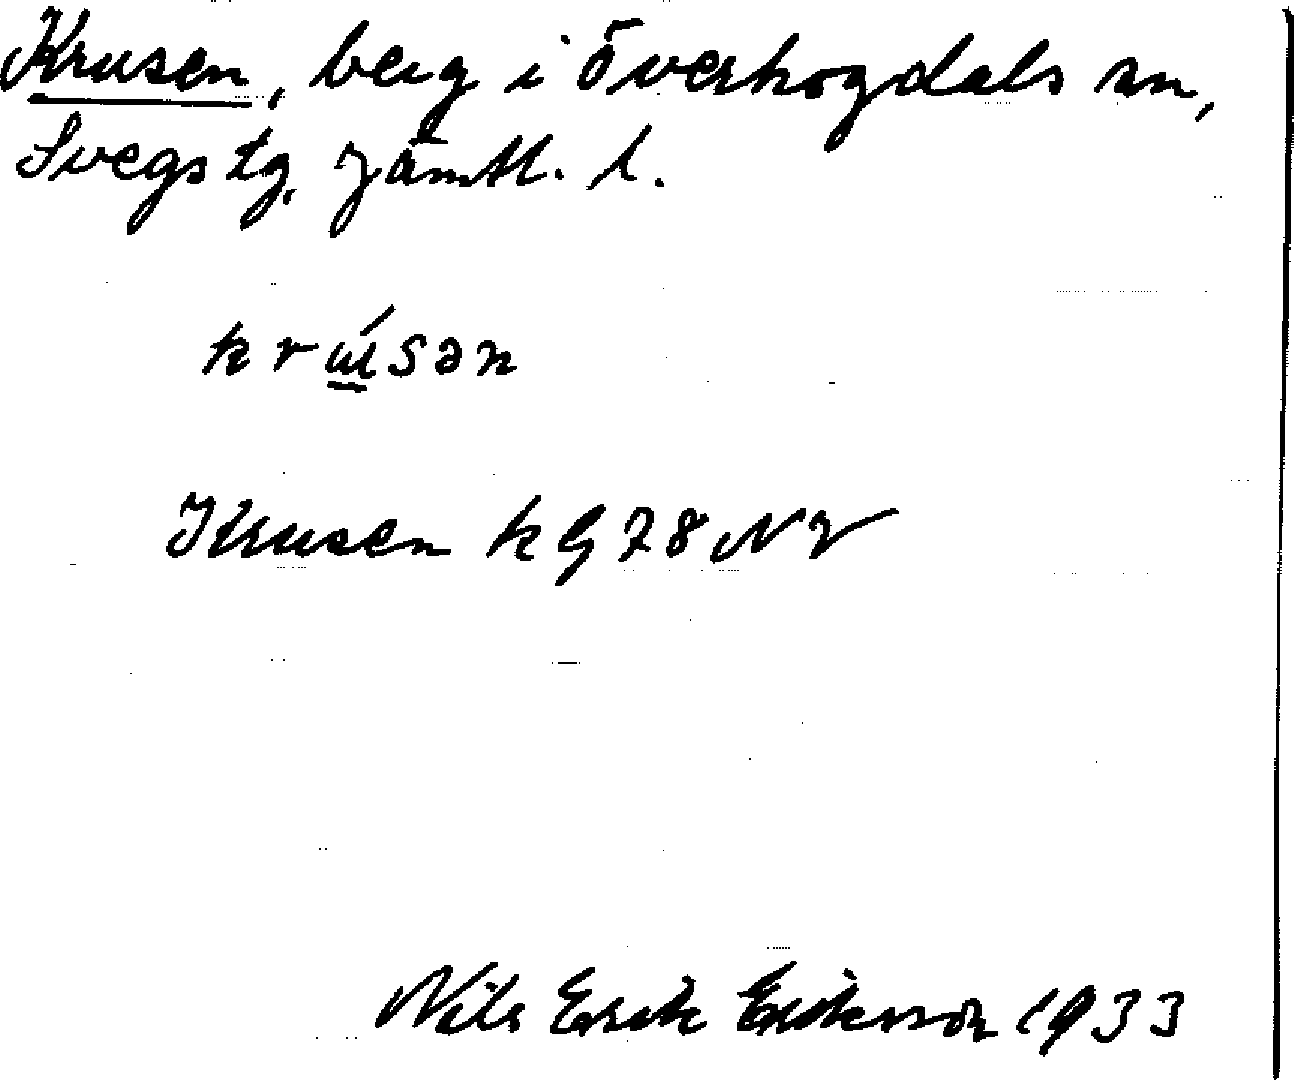 Krusen, berg i Överhogdals sn,
Svegs tg, Jämtl. l.
krúsən
Krusen k G 78 NV
Nils Erik Eriksson 1933